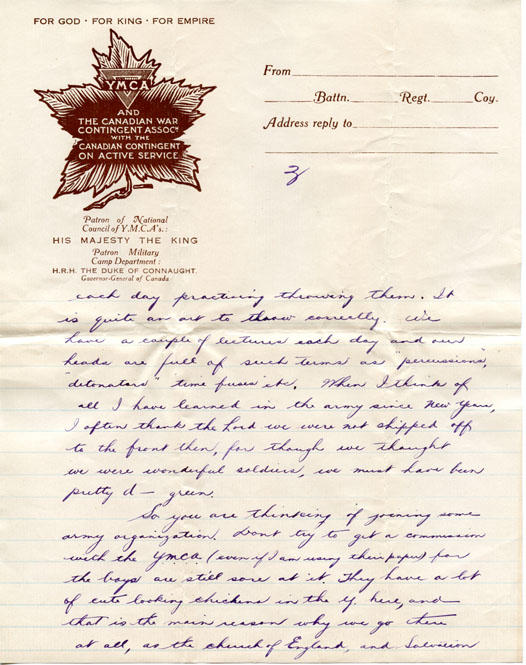 FOR GOD · FOR KING · FOR EMPIRE
YMCA
AND
THE CANADIAN WAR
CONTINGENT ASSOCN
WITH THE
CANADIAN CONTINGENT
ON ACTIVE SERVICE
Patron of National
Council of Y.M.C.A's.:
HIS MAJESTY THE KING
Patron Military
Camp Department:
H.R.H. THE DUKE OF CONNAUGHT.
Governor-General of Canada
From
Battn. Regt. Coy.
Address reply to
3
each day practicing throwing them. It
is quite an art to throw correctly. We
have a couple of lectures each day and our
heads are full of such terms as "percussions",
"detonators" time fuses etc. When I think of
all I have learned in the army since New Years,
I often thank the Lord we were not shipped off
to the front then, for though we thought
we were wonderful soldiers, we must have been
pretty d— green.
So you are thinking of joening some
army organization. Dont try to get a commission
with the YMCA (even if I am using their paper) for
the boys are still sore at it. They have a lot
of cute looking chickens in the Y. here, and
that is the main reason why we go there
at all, as the church of England, and Salvation